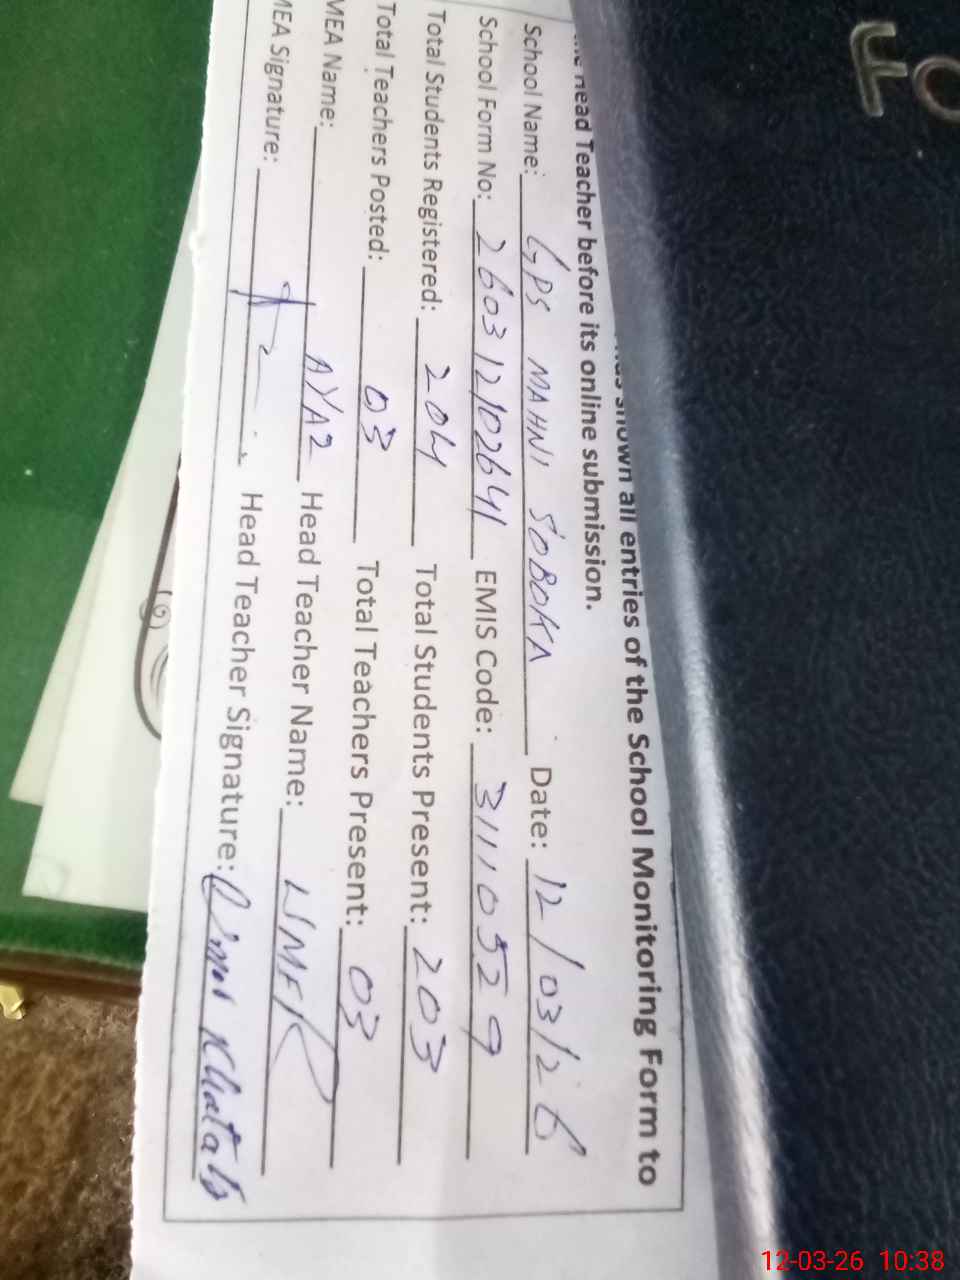 has shown all entries of the School Monitoring Form to
the Head Teacher before its online submission.
School Name: GPS MAHNI SOBOKA Date: 12/03/26
School Form No: 2603121102641 EMIS Code: 31110529
Total Students Registered: 204 Total Students Present: 203
Total Teachers Posted: 03 Total Teachers Present: 03
MEA Name: AYAZ Head Teacher Name: UMER
MEA Signature: Head Teacher Signature: Umar Khatab
FO
12-03-26 10:38